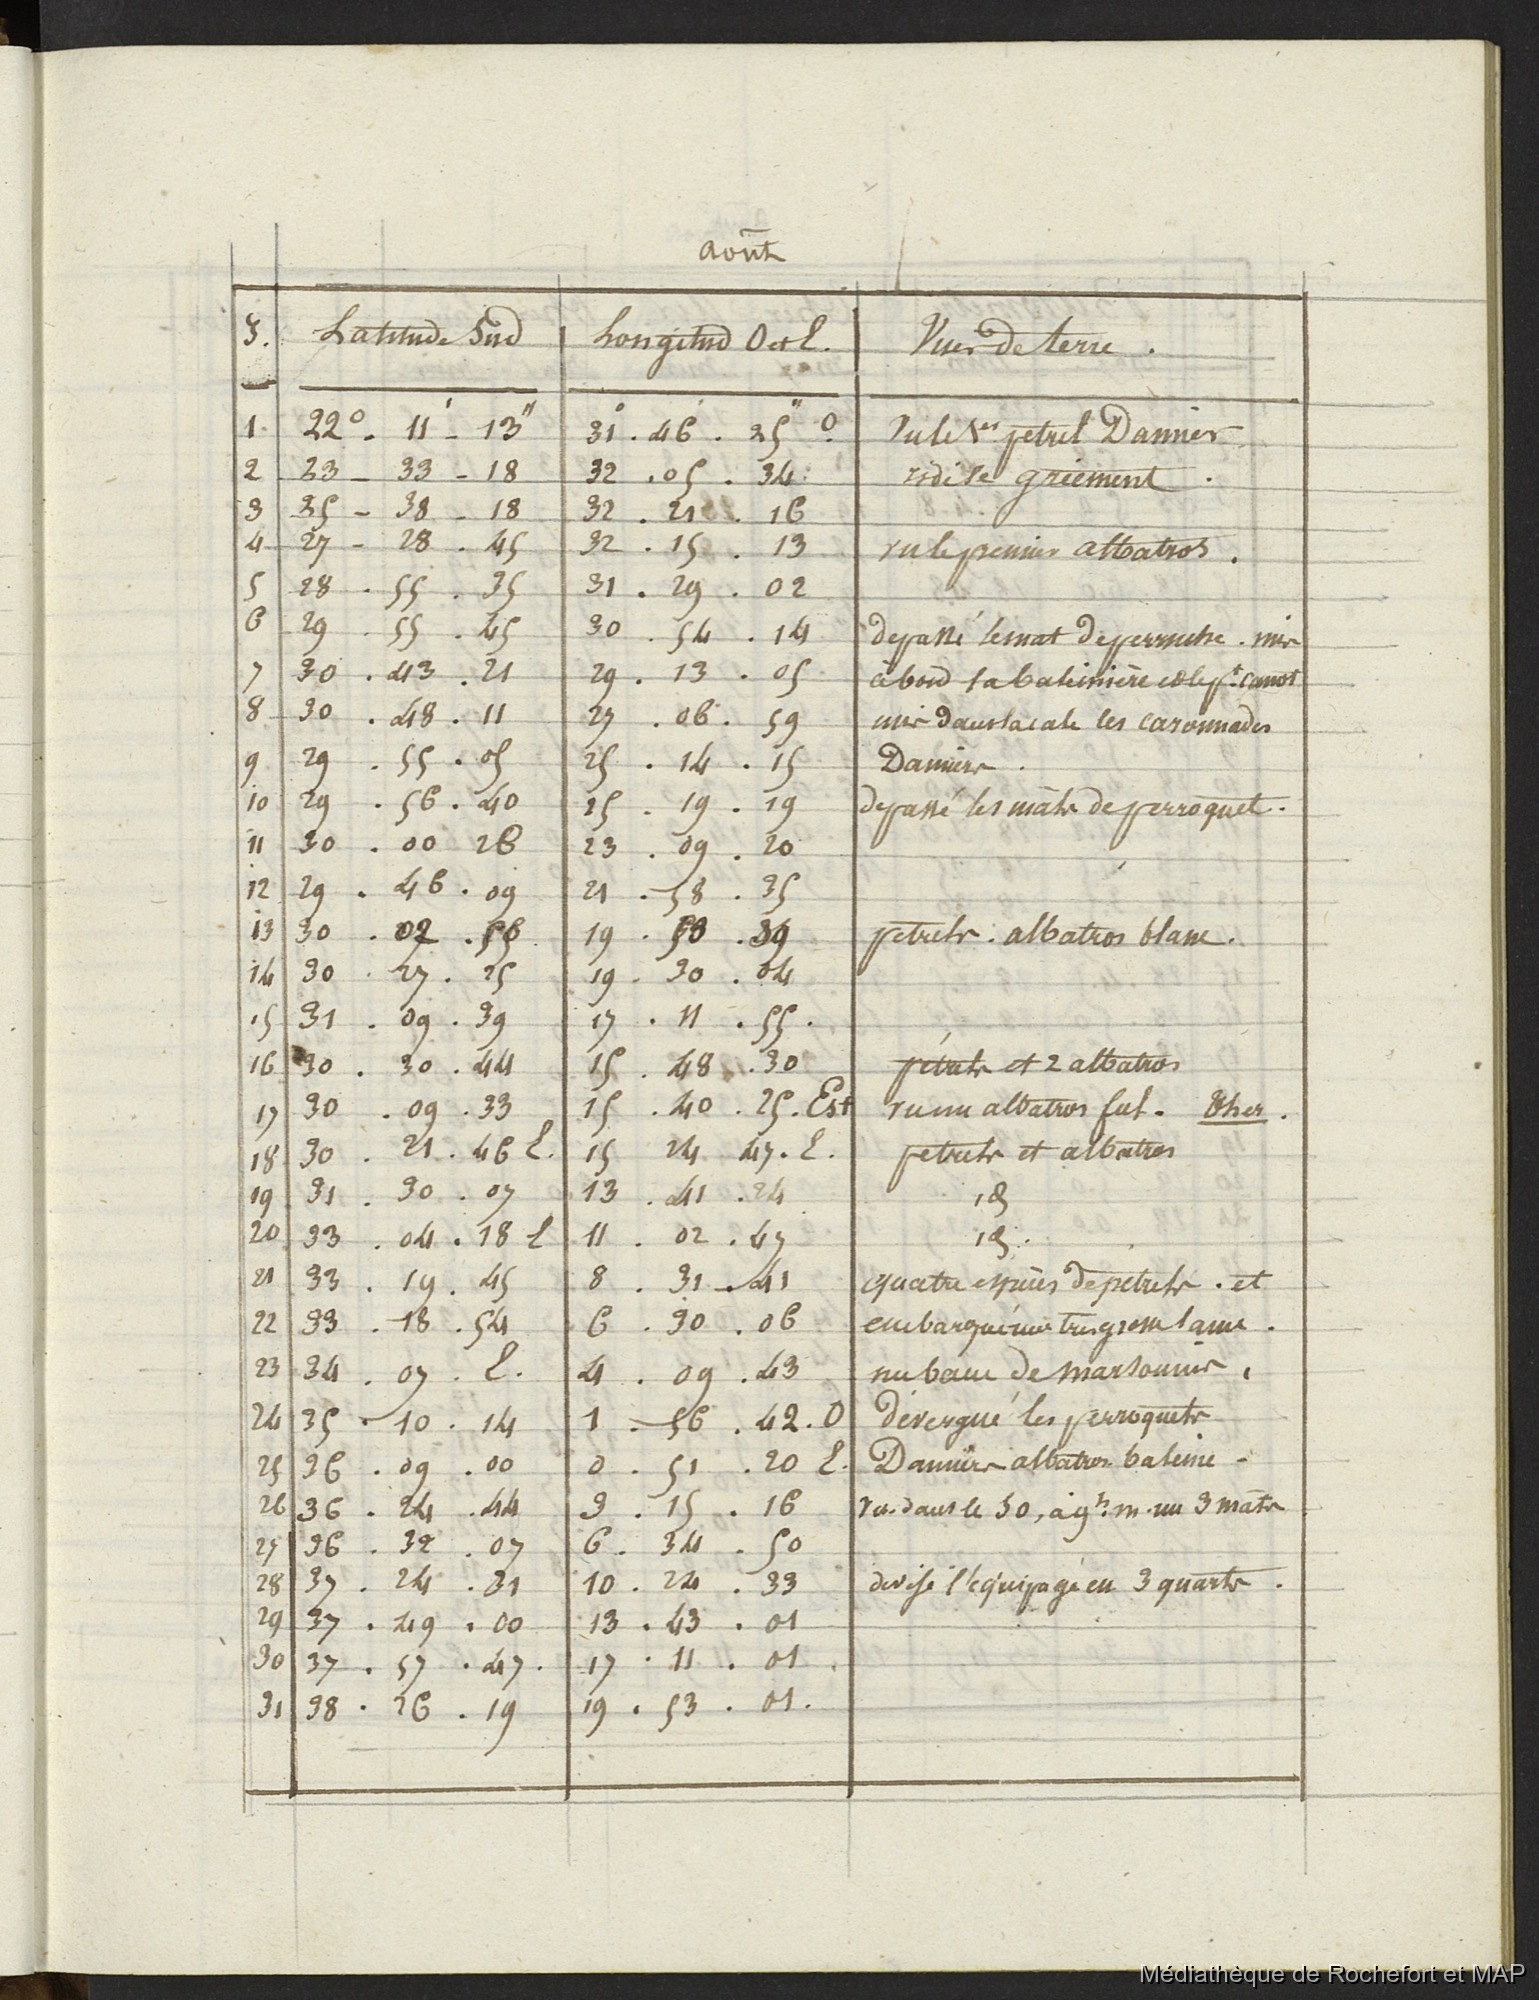 août
J. Latitude Sud Longitud O et E. Vues de terre.
1 22° . 11' - 13" 31° . 46' . 25" O. Vu le 1er petrel Damier
2 23 - 33 - 18 32 . 05 . 34 ridé le griement .
3 25 - 38 - 18 32 . 21 . 16
4 27 - 28 . 45 32 . 15 . 13 vu le premier albatros .
5 28 . 55 . 35 31 . 29 . 02
6 29 . 55 . 45 30 . 54 . 14 depassé le mat de perruche . mis
7 30 . 43 . 21 29 . 13 . 05 à bord la baleinière et le pt canot
8 30 . 48 . 11 27 . 06 . 59 mis dans la cale les caronnades
9 29 . 55 . 05 25 . 14 . 15 Damiers .
10 29 . 56 . 40 25 . 19 . 19 depassé les mâts de perroquet .
11 30 . 00 26 23 . 09 . 20
12 29 . 46 . 09 21 . 58 . 35
13 30 . 02 . 56 19 . 50 . 39 petrels . albatros blanc .
14 30 . 27 . 25 19 . 30 . 04
15 31 . 09 . 39 17 . 11 . 55 .
16 30 . 30 . 44 15 . 48 . 30 pétrels et 2 albatros
17 30 . 09 . 33 15 . 40 . 25 . Est vu un albatros
18 30 . 21 . 46 E. 15 24 47 . E. petrels et albatros
19 31 . 30 . 07 13 . 41 . 24 id
20 33 . 04 . 18 E 11 . 02 . 47 id .
21 33 . 19 . 45 8 . 31 . 41 quatre espèces de petrels . et
22 33 . 18 . 54 6 . 30 . 06 embarqué une tres grosse lame .
23 34 . 07 . E. 4 . 09 . 43 un banc de marsouins .
24 35 . 10 . 14 1 . 56 . 42 . O dévergué les perroquets
25 36 . 09 . 00 0 . 51 . 20 E. Damiers albatros baleine -
26 36 . 24 . 44 3 . 15 . 16 vu dans le SO, à 9h. m . un 3 mats
27 36 . 32 . 07 6 . 34 . 50
28 37 . 24 . 31 10 . 24 . 33 divisé l'équipage en 3 quarts .
29 37 . 49 . 00 13 . 43 . 01
30 37 . 57 . 47 . 17 . 11 . 01
31 38 . 26 . 19 19 . 53 . 01 .
Médiathèque de Rochefort et MAP